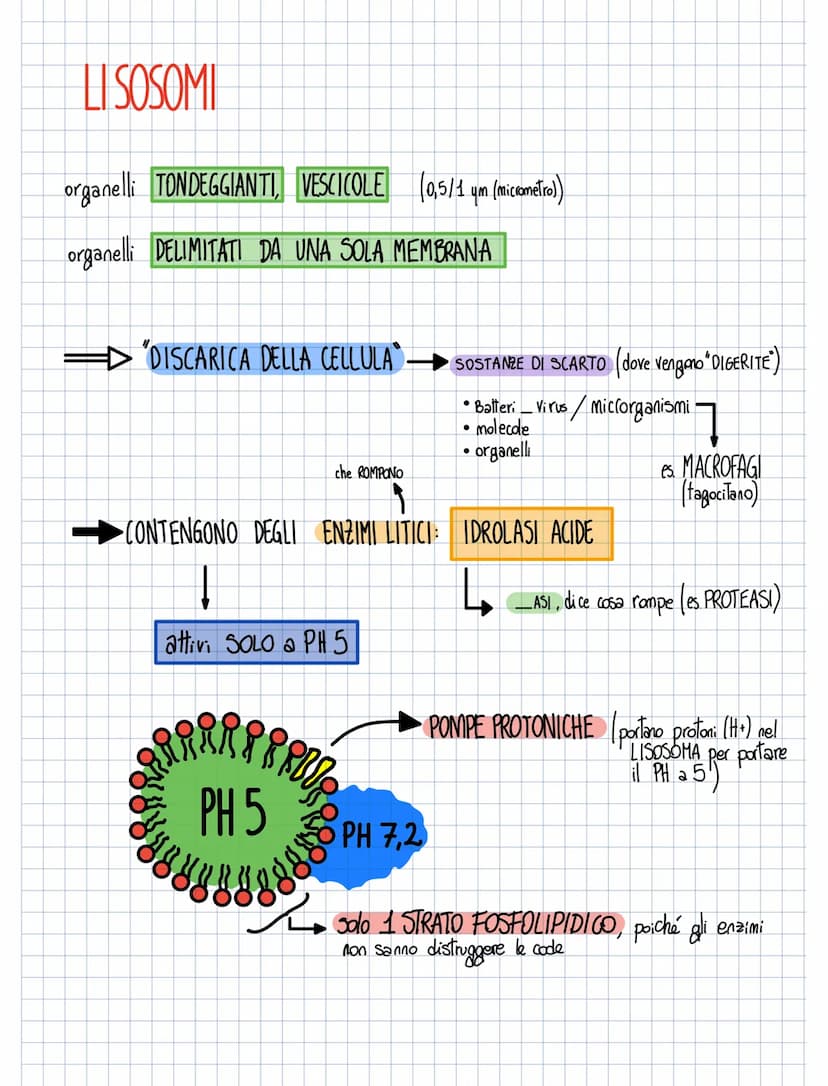 LISOSOMI
organelli TONDEGGIANTI, VESCICOLE (0,5/1 ɥm (micrometro))
organelli DELIMITATI DA UNA SOLA MEMBRANA
"DISCARICA DELLA CELLULA" SOSTANZE DI SCARTO (dove vengono "DIGERITE")
• Batteri _ Virus / microrganismi
• molecole
• organelli
es. MACROFAGI
(fagocitano)
che ROMPONO
CONTENGONO DEGLI ENZIMI LITICI: IDROLASI ACIDE
_ASI, dice cosa rompe (es. PROTEASI)
attivi SOLO a PH 5
POMPE PROTONICHE (portano protoni (H+) nel
LISOSOMA per portare
il PH a 5)
PH 5
PH 7,2
solo 1 STRATO FOSFOLIPIDICO, poiché gli enzimi
non sanno distruggere le code